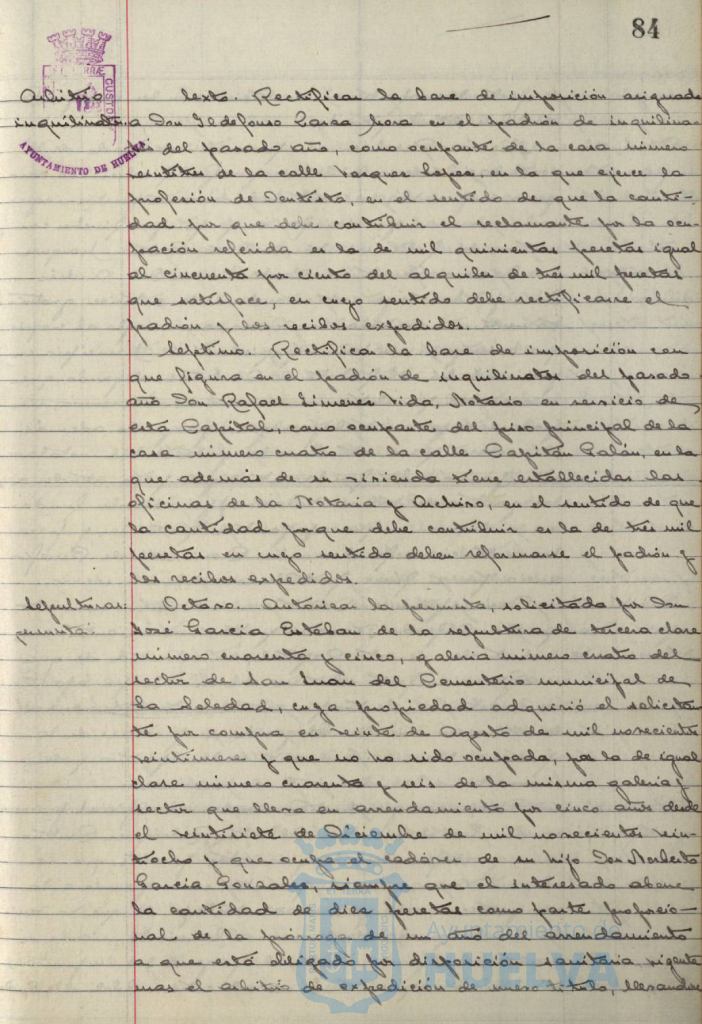 84
Arbitrio
inquilinato
AYUNTAMIENTO DE HUELVA
Sexto. Rectificar la base de imposición asignada
a Don Ildefonso Lassa Mora en el padrón de inquilina-
tos del pasado año, como ocupante de la casa número
veintitres de la calle Vazquez Lopez, en la que ejerce la
profesión de Dentista, en el sentido de que la canti-
dad por que debe contribuir el reclamante por la ocu-
pación referida es la de mil quinientas pesetas igual
al cincuenta por ciento del alquiler de tres mil pesetas
que satisface, en cuyo sentido debe rectificarse el
padrón y los recibos expedidos.
Septimo. Rectificar la base de imposición con
que figura en el padrón de inquilinatos del pasado
año Don Rafael Jimenez Vida, Notario en servicio de
esta Capital, como ocupante del piso principal de la
casa número cuatro de la calle Capitán Galán, en la
que además de su vivienda tiene establecidas las
oficinas de la Notaria y Archivo, en el sentido de que
la cantidad porque debe contribuir es la de tres mil
pesetas en cuyo sentido deben reformarse el padrón y
los recibos expedidos.
Sepulturas:
permuta.
Octavo. Autorizar la permuta, solicitada por Don
José Garcia Esteban de la sepultura de tercera clase
número cuarenta y cinco, galeria número cuatro del
sector de San Juan del Cementerio municipal de
la Soledad, cuya propiedad adquirió el solicitan-
te por compra en veinte de Agosto de mil novecientos
veintinueve y que no ha sido ocupada, por la de igual
clase número cuarenta y seis de la misma galeria y
sector que lleva en arrendamiento por cinco años desde
el veintisiete de Diciembre de mil novecientos vein-
tiocho y que ocupa el cadáver de su hijo Don Norberto
Garcia Gonzalez, siempre que el interesado abone
la cantidad de diez pesetas como parte proporcio-
nal de la prórroga de un año del arrendamiento
a que está obligado por disposición sanitaria vigente
mas el arbitrio de expedición de nuevo titulo, llevandose
Ayuntamiento de
HUELVA